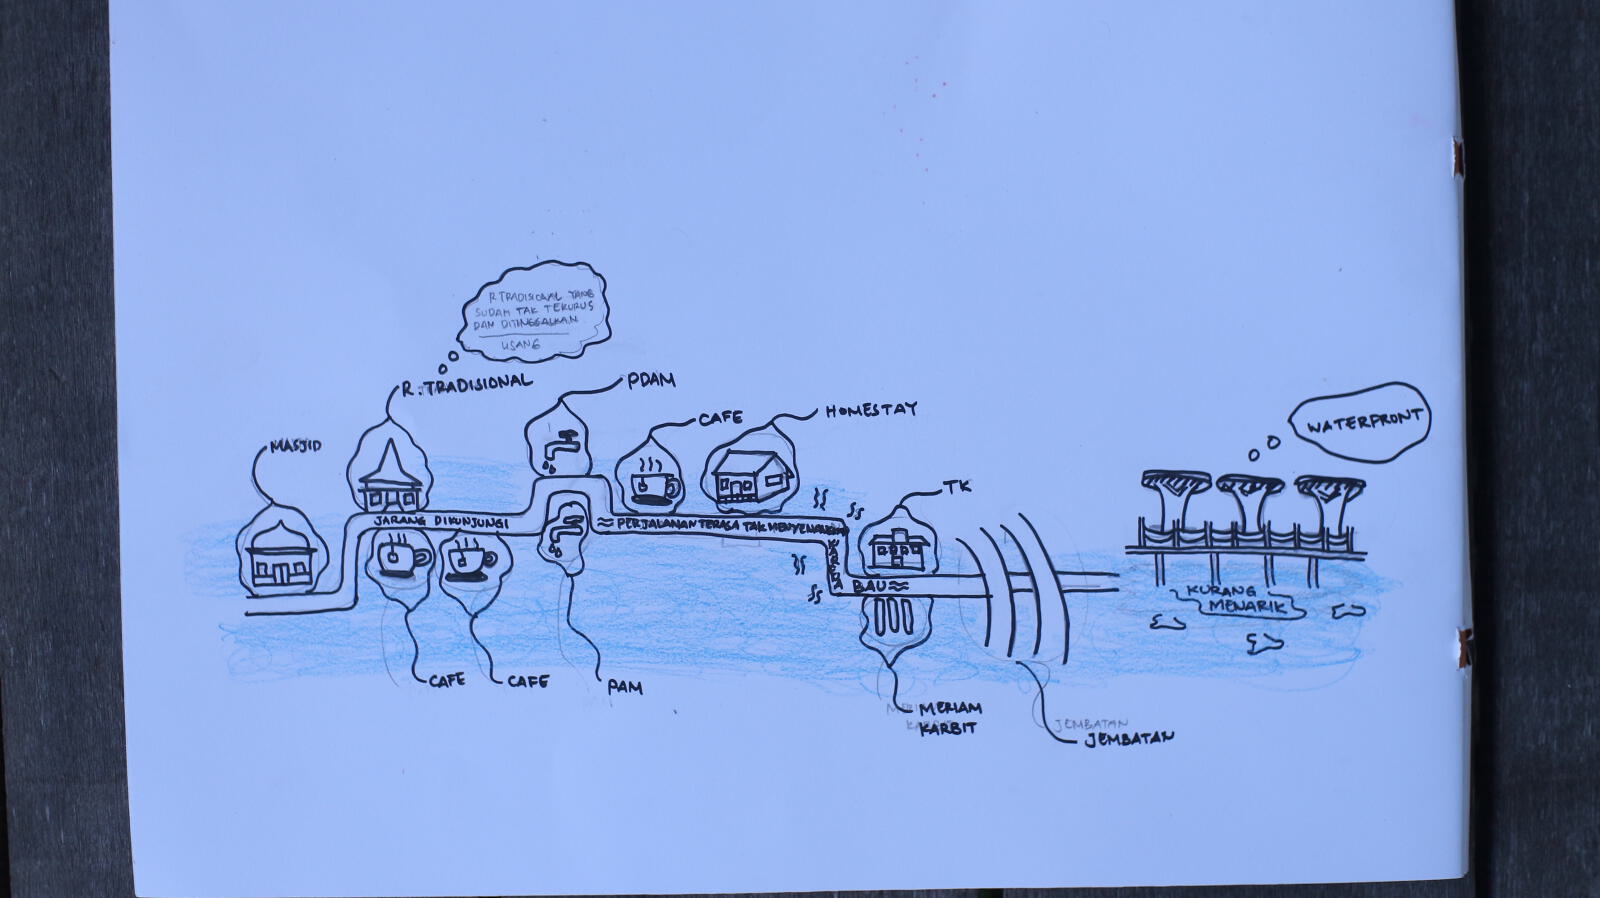 R TRADISIONAL YANG
SUDAH TAK TERURUS
DAN DITINGGALKAN
USANG
R. TRADISIONAL
PDAM
CAFE
HOMESTAY
WATERFRONT
MASJID
TK
JARANG DIKUNJUNGI
PERJALANAN TERASA TAK MENYENANGKAN
KARENA
BAU
KURANG
MENARIK
CAFE
CAFE
PAM
MERIAM
KARBIT
JEMBATAN
JEMBATAN